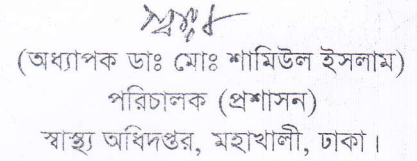 (অধ্যাপক ডাঃ মোঃ শামিউল ইসলাম)
পরিচালক (প্রশাসন)
স্বাস্থ্য অধিদপ্তর, মহাখালী, ঢাকা।